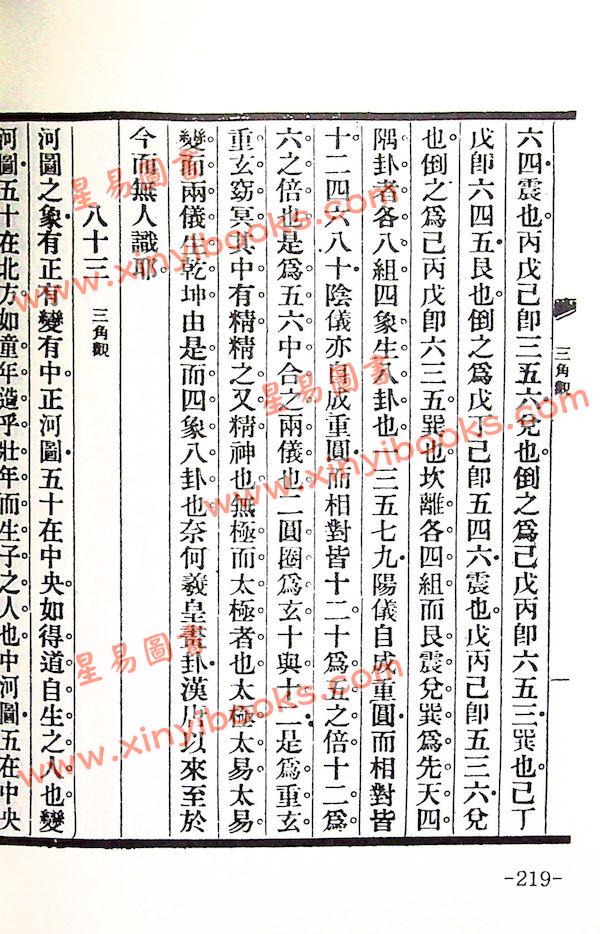 三角觀
一
六四震也。丙戊己卽三五六兌也。倒之爲己戊丙卽六五三巽也。己丁
戊卽六四五艮也。倒之爲戊丁己卽五四六震也。戊丙己卽五三六兌
也。倒之爲己丙戊卽六三五巽也。坎離各四組而艮震兌巽爲先天四
隅卦者各八組四象生八卦也。一三五七九陽儀自成重圓而相對皆
十二四六八十陰儀亦自成重圓而相對皆十二十爲五之倍十二爲
六之倍也。是爲五六中合之兩儀也。二圓圈爲玄十與十二是爲重玄
重玄窈冥其中有精精之又精神也。無極而太極者也。太極太易太易
變而兩儀生乾坤由是而四象八卦也。奈何羲皇畫卦漢唐以來至於
今而無人識耶。
八十三 三角觀
河圖之象有正有變有中正河圖五十在中央如得道自生之人也。變
河圖五十在北方如童年造乎壯年而生子之人也。中河圖五在中央
-219-
星易圖書
www.xinyibooks.com
星易圖書
www.xinyibooks.com
星易圖書
www.xinyibooks.com
星易圖書
www.xinyibooks.com